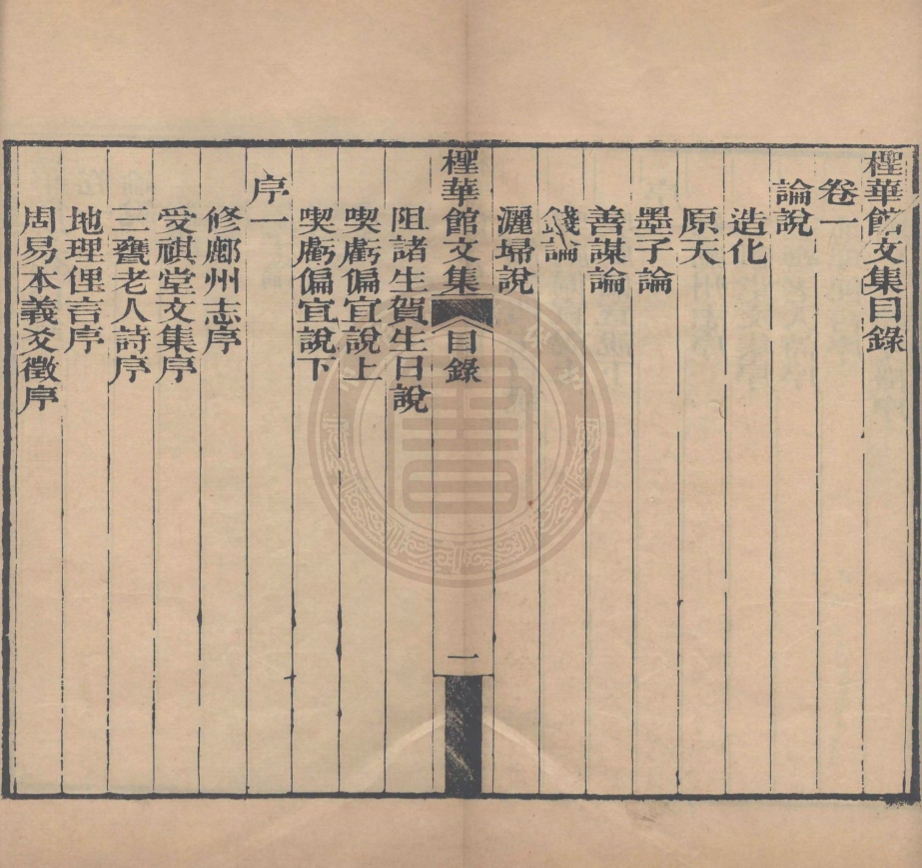 檉華館文集目錄
卷一
論說
造化
原天
墨子論
善謀論
錢論
灑埽說
檉華館文集 目錄 一
阻諸生賀生日說
喫虧偏宜說上
喫虧偏宜說下
序一
修鄜州志序
愛祺堂文集序
三甕老人詩序
地理俚言序
周易本義爻徵序
書